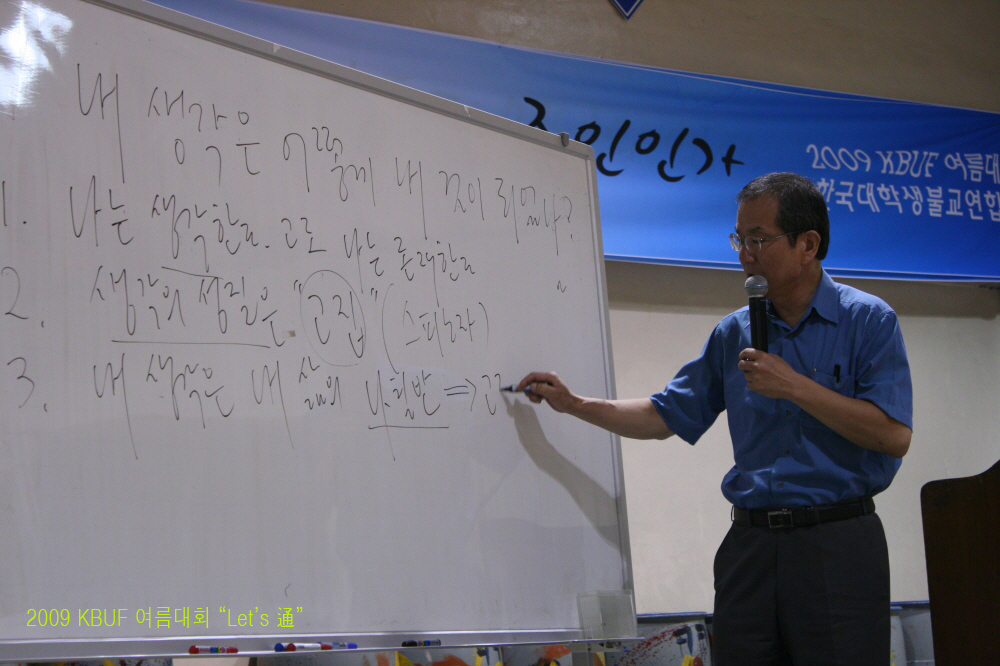 내 생각은 어떻게 내 것이 되었나?
1. 나는 생각한다. 고로 나는 존재한다
2. 생각의 성질은 "고집" (스피노자)
3. 내 생각은 내 삶의 나침반 ⇒
주인인가
2009 KBUF 여름대
한국대학생불교연합
2009 KBUF 여름대회 "Let's 通"